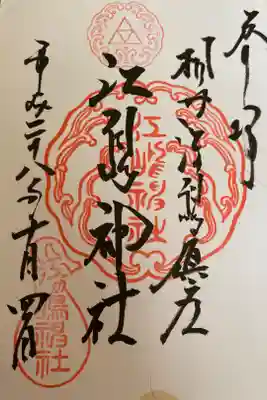 奉拝
相州江嶋鎮座
江島神社
平成二十八年十月四日
江島神社
江嶋神社